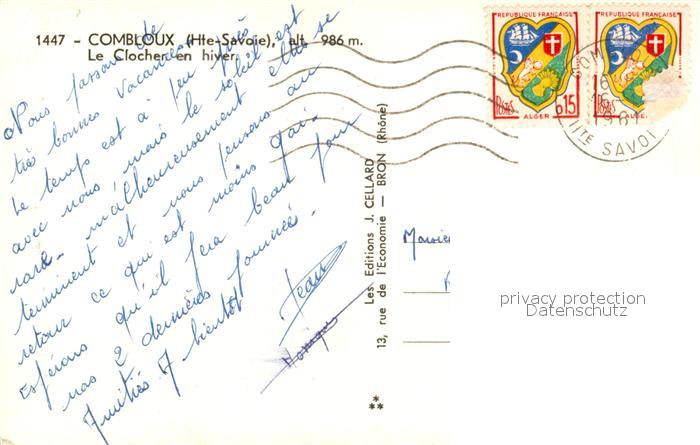 1447 - COMBLOUX (Hte-Savoie), alt. 986 m.
Le Clocher en hiver
Nous passons de
très bonnes vacances
Le temps est à peu près
avec nous mais le soleil est
rare malheureusement elles se
terminent et nous pensons au
retour ce qui est moins gai.
Espérons qu'il fera beau pour
nos 2 dernières journées.
Amitiés. A bientôt
Jean
Monique
Les Editions J. CELLARD
13, rue de l'Economie — BRON (Rhône)
REPUBLIQUE FRANÇAISE
POSTES
0,15
ALGER
REPUBLIQUE FRANÇAISE
HTE SAVOIE
privacy protection
Datenschutz